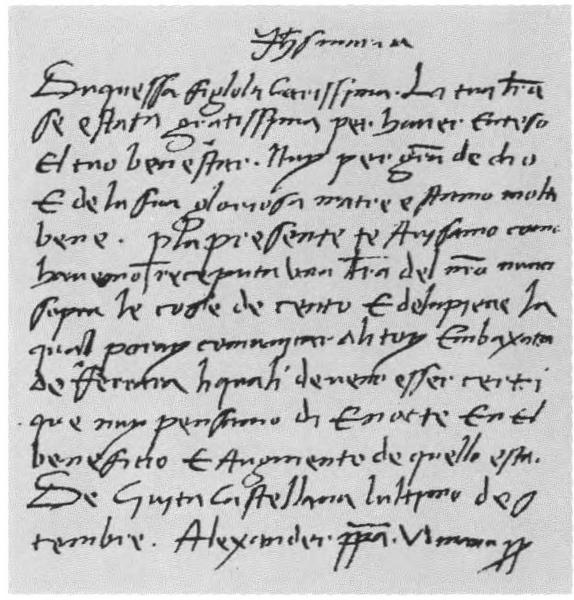 Jhs maria
Duquessa figlola Carissima. La tua lra
se e stata gratissima per haver Enteso
El tuo ben estar. Nuy per gra de dio
E de la sua gloriosa matre e stamo molto
bene. p la presente te Avisamo como
havemo receputa una lra del nro nuncio
sopra le cose de cento E de la pieve la
qual poray comunicar ali toy Embaxatori
de ferrara li quali deveno esser certi
que nuy pensamo di E nocte En el
beneficio E Augmento de quello esta.
De Civita Castellana lultimo de S
tembre. Alexander ppa. VI manu pp